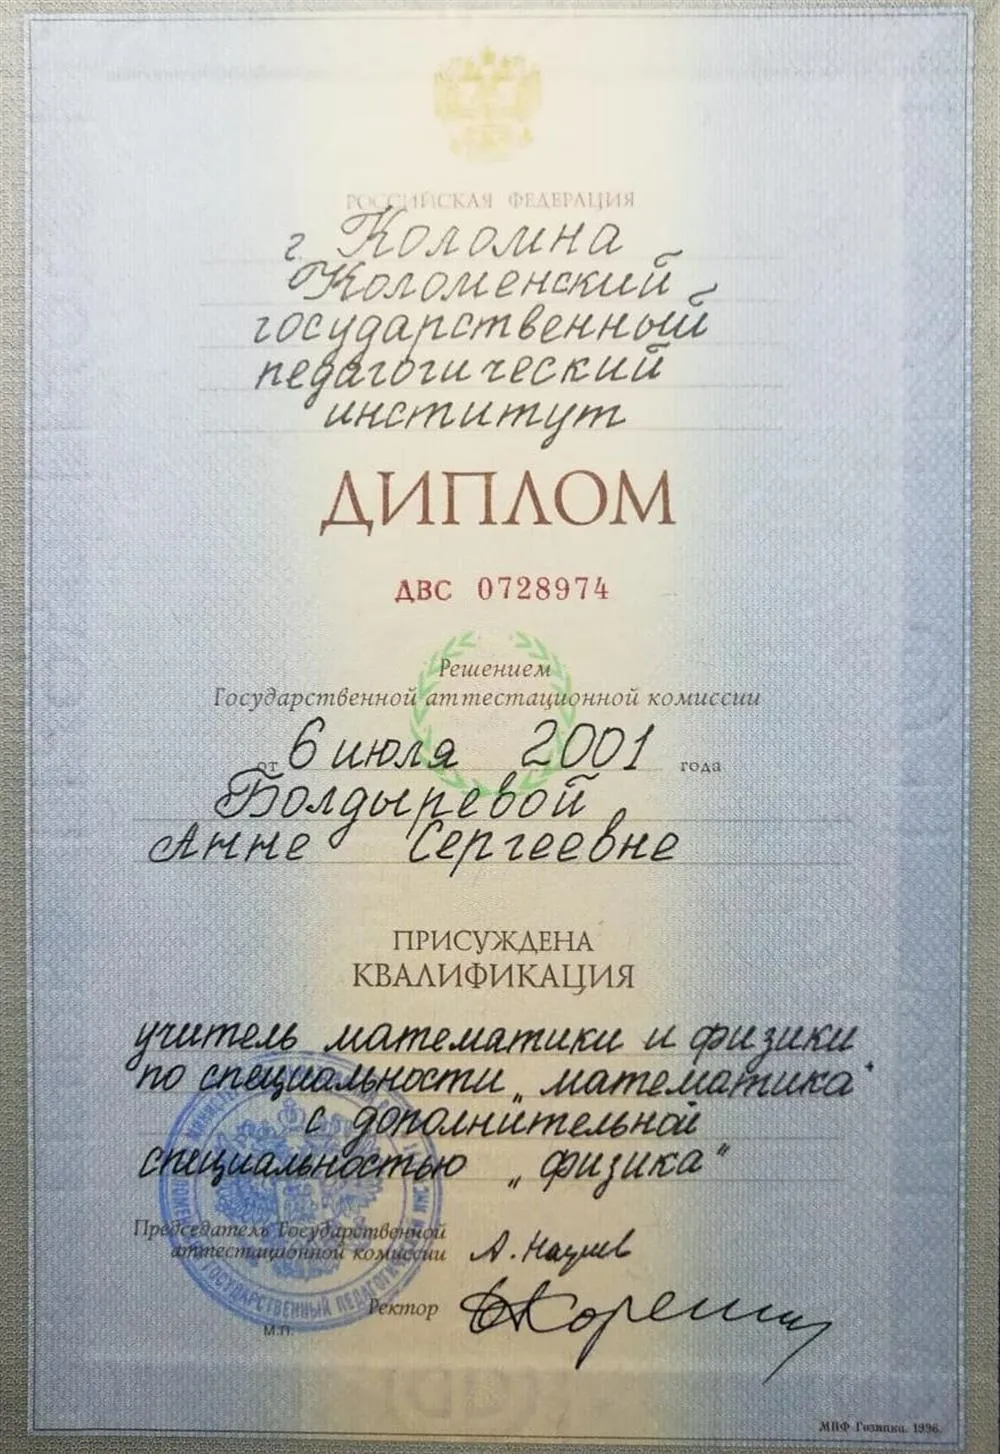 РОССИЙСКАЯ ФЕДЕРАЦИЯ
г Коломна
Коломенский
государственный
педагогический
институт
ДИПЛОМ
ДВС 0728974
Решением
Государственной аттестационной комиссии
от 6 июля 2001 года
Болдыревой
Анне Сергеевне
ПРИСУЖДЕНА
КВАЛИФИКАЦИЯ
учитель математики и физики
по специальности „математика“
с дополнительной
специальностью „физика“
Председатель Государственной
аттестационной комиссии
Ректор
М.П.
ГОСУДАРСТВЕННЫЙ ПЕДАГОГИЧЕСКИЙ
МПФ Гознака. 1996.